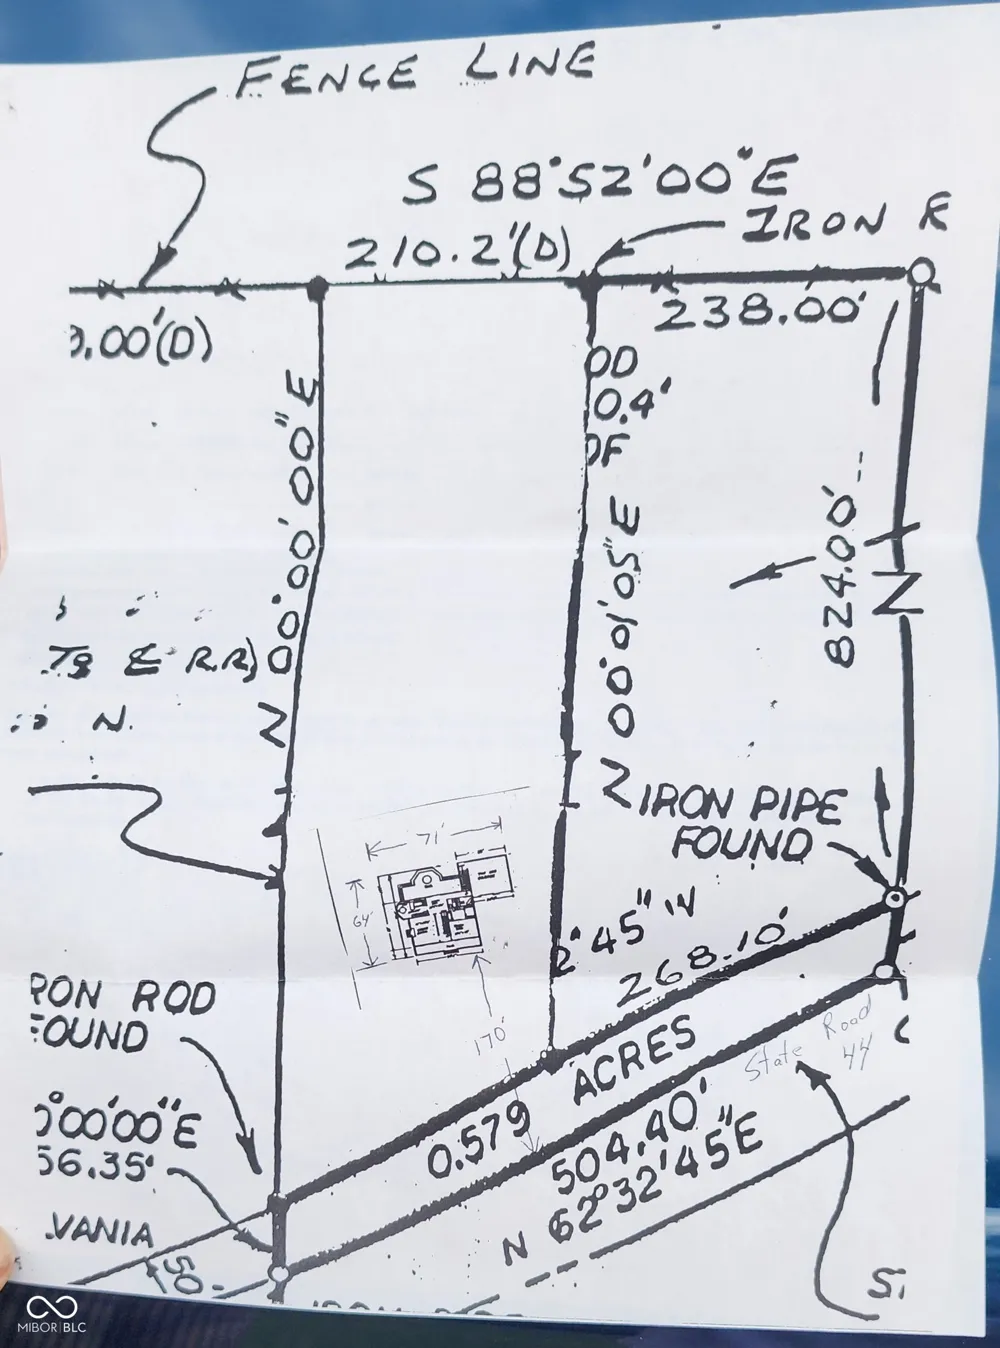 FENCE LINE
S 88°52'00"E
IRON
210.2'(D)
238.00'
.00'(D)
OD
0.4'
OF
N 00°00'00"E
N 00°01'05"E
824.00'
N
& R.R)
N.
IRON PIPE
FOUND
71'
64'
2'45"W
268.10'
170'
RON ROD
OUND
State Road
44
0.579 ACRES
°00'00"E
56.35'
504.40'
N 62°32'45"E
VANIA
50
MIBOR BLC